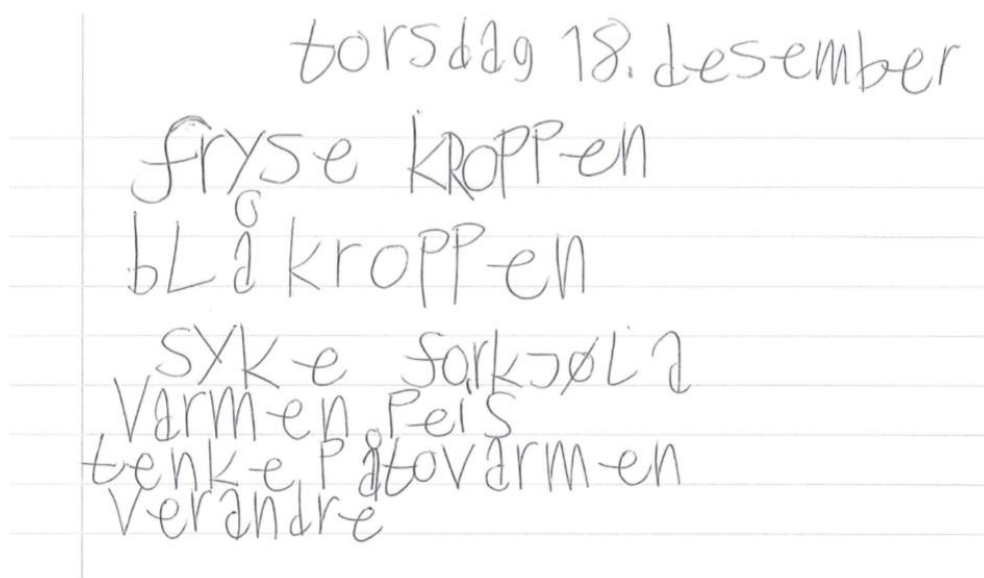 torsdag 18. desember
fryse kROPPen
bLå kroPPen
syke forkjøLa
Varmen Peis
tenke Påtovarmen
Verandre